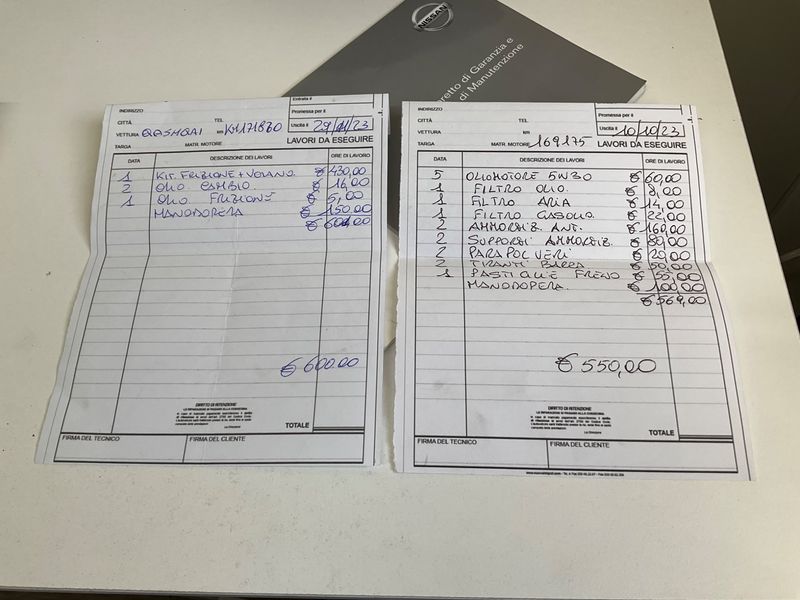 NISSAN
retto di Garanzia e
di Manutenzione
INDIRIZZO
Entrata il
CITTÀ
TEL.
Promessa per il
VETTURA QASHQAI
km KM171820
Uscita il 29/11/23
TARGA
MATR. MOTORE
LAVORI DA ESEGUIRE
DATA
DESCRIZIONE DEI LAVORI
ORE DI LAVORO
1 KIT. FRIZIONE + VOLANO € 430,00
2 OLIO CAMBIO. € 16,00
1 OLIO FRIZIONE € 5,00
MANODOPERA € 150,00
€ 601,00
€ 600,00
DIRITTO DI RITENZIONE
TOTALE
FIRMA DEL TECNICO
FIRMA DEL CLIENTE
INDIRIZZO
CITTÀ
TEL.
Promessa per il
VETTURA
km
Uscita il 10/10/23
TARGA
MATR. MOTORE 169175
LAVORI DA ESEGUIRE
DATA
DESCRIZIONE DEI LAVORI
ORE DI LAVORO
5 OLIO MOTORE 5W30 € 60,00
1 FILTRO OLIO. € 8,00
1 FILTRO ARIA € 14,00
1 FILTRO GASOLIO € 22,00
2 AMMORTIZ. ANT. € 160,00
2 SUPPORTI AMMORTIZ. € 80,00
2 PARAPOLVERI € 20,00
2 TIRANTI BARRA € 50,00
1 PASTIGLIE FRENO € 55,00
MANODOPERA. € 100,00
€ 569,00
€ 550,00
DIRITTO DI RITENZIONE
TOTALE
FIRMA DEL TECNICO
FIRMA DEL CLIENTE